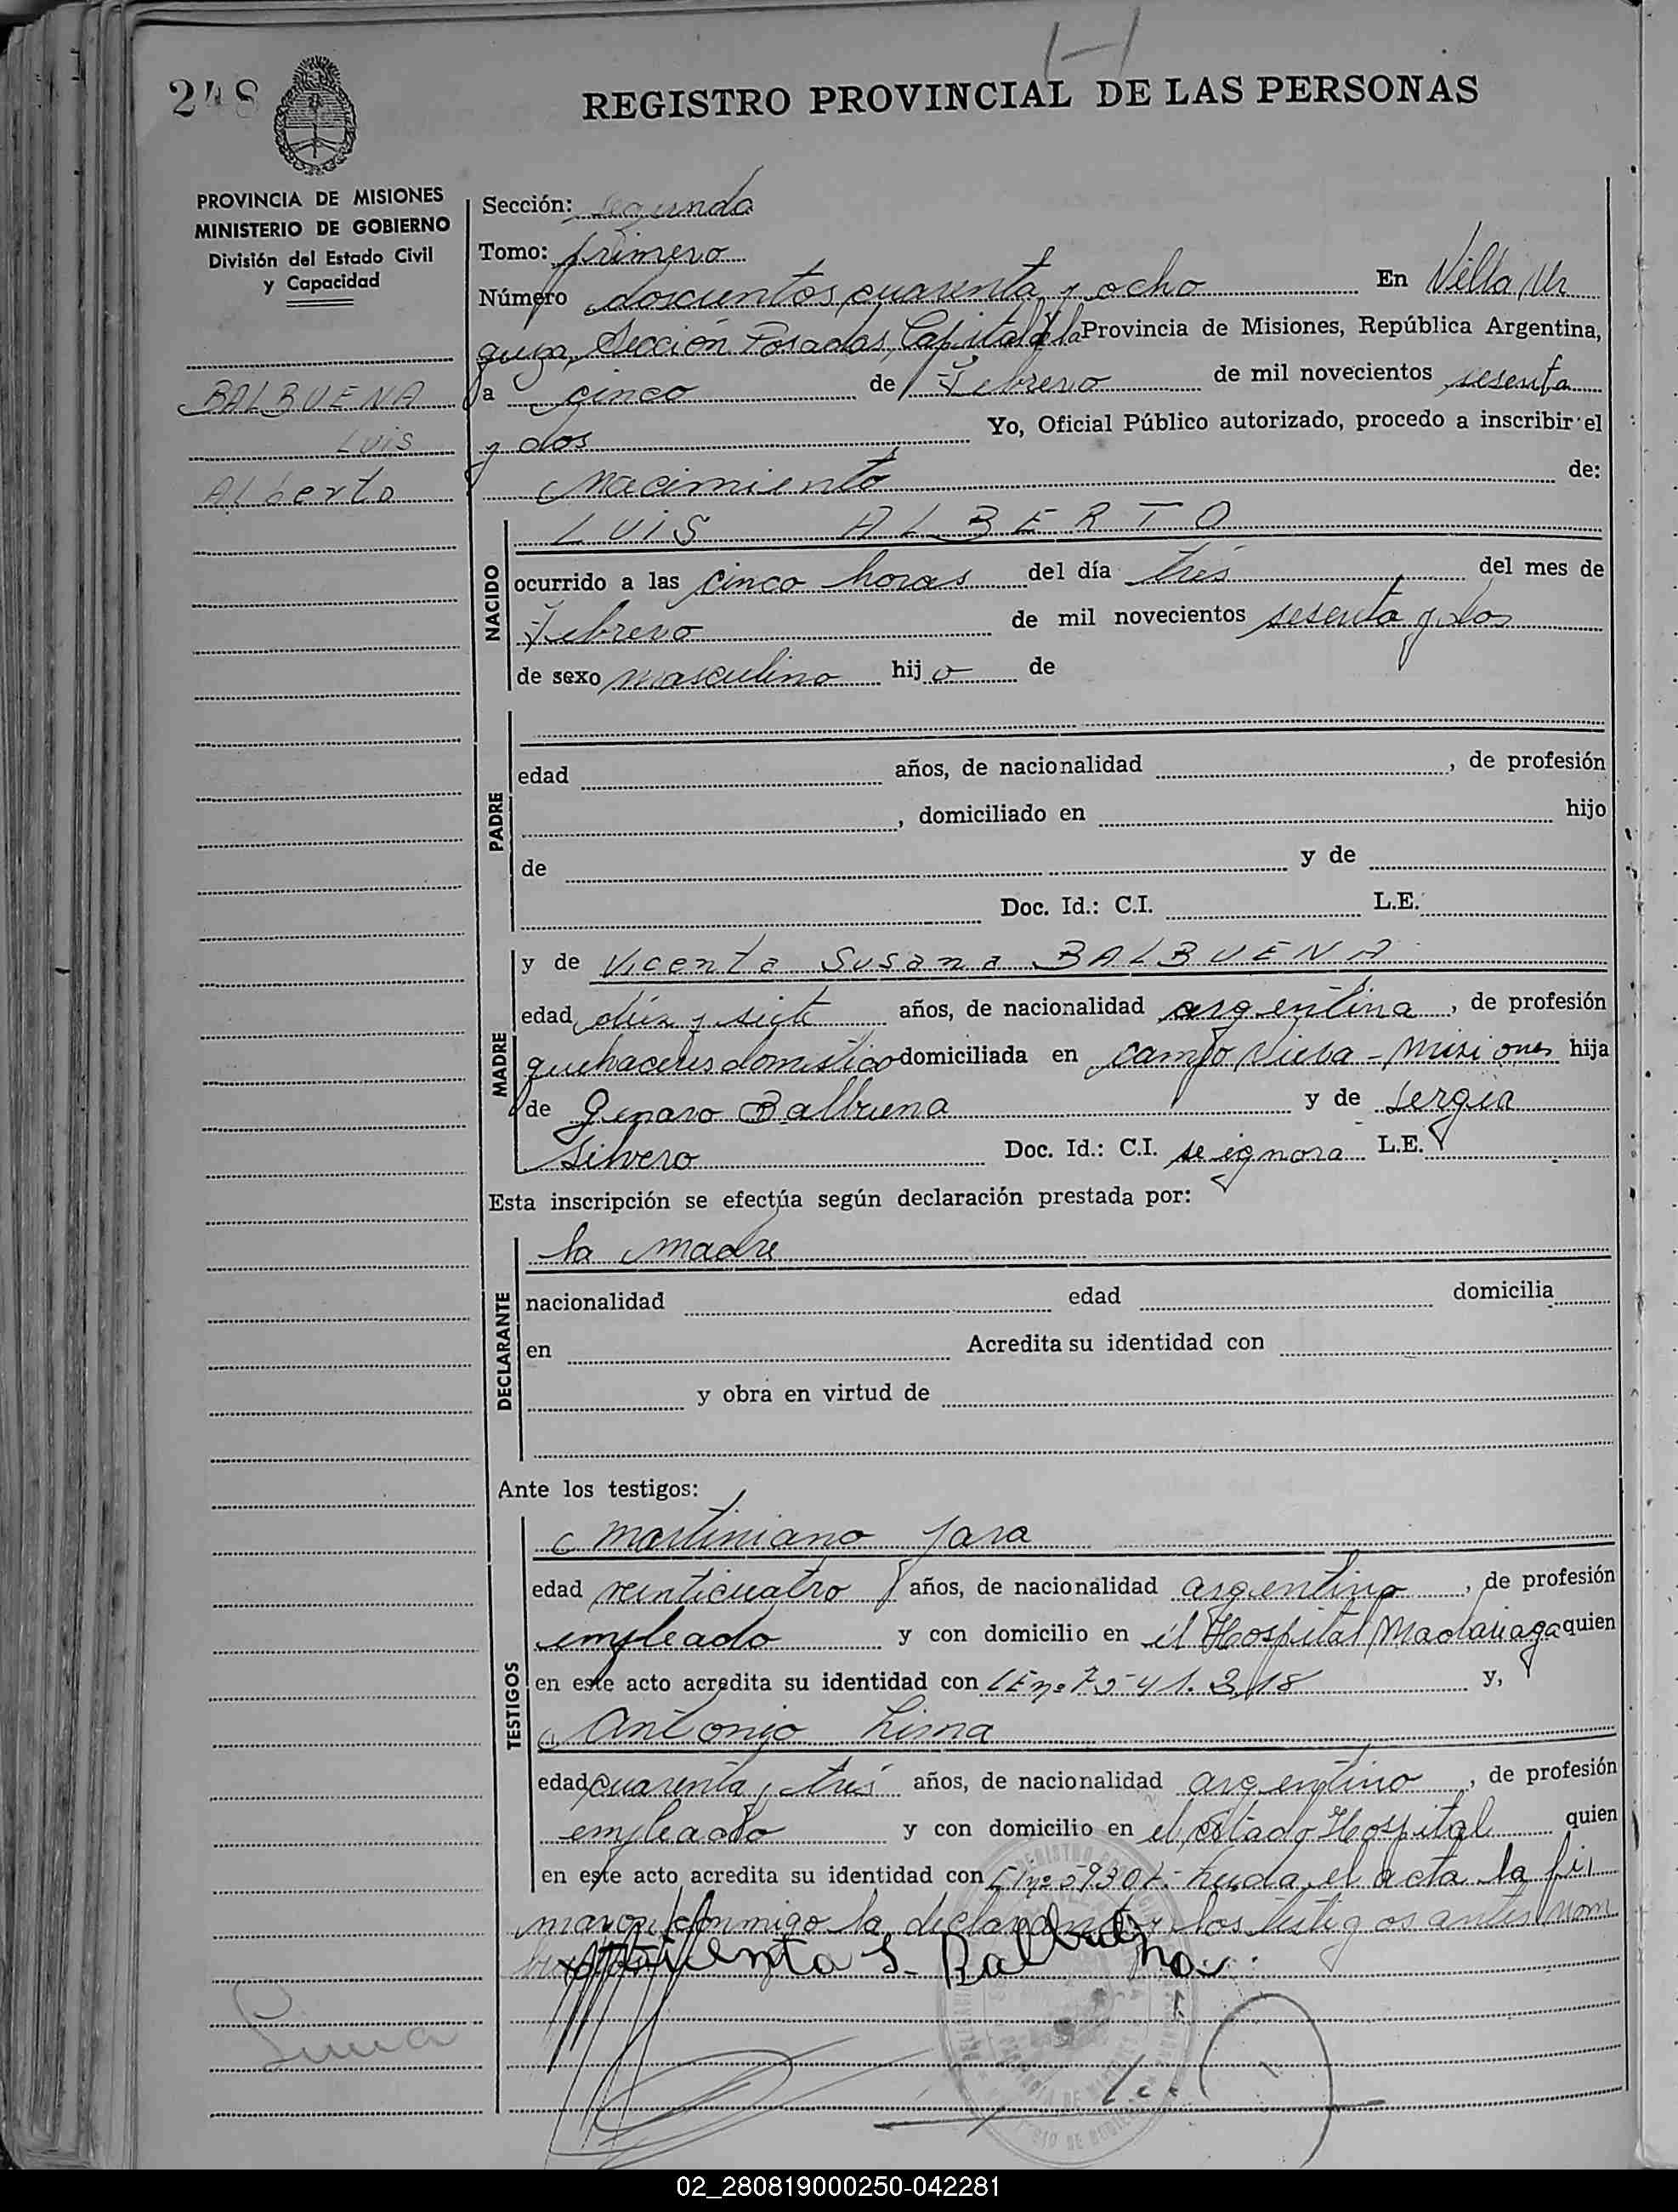 248
REGISTRO PROVINCIAL DE LAS PERSONAS
PROVINCIA DE MISIONES
MINISTERIO DE GOBIERNO
División del Estado Civil
y Capacidad
BALBUENA
Luis
Alberto
Sección: segunda
Tomo: primero
Número doscientos cuarenta y ocho En Villa Ur
quiza, Sección Posadas, Capital de la Provincia de Misiones, República Argentina,
a cinco de Febrero de mil novecientos sesenta
y dos Yo, Oficial Público autorizado, procedo a inscribir el
Nacimiento de:
NACIDO
LUIS ALBERTO
ocurrido a las cinco horas del día tres del mes de
Febrero de mil novecientos sesenta y dos
de sexo masculino hijo de
PADRE
edad años, de nacionalidad , de profesión
, domiciliado en hijo
de y de
Doc. Id.: C.I. L.E.
MADRE
y de Vicenta Susana BALBUENA
edad diez y siete años, de nacionalidad argentina, de profesión
quehaceres domestico domiciliada en campo viera - Misiones hija
de Genaro Balbuena y de Sergia
Silvero Doc. Id.: C.I. se ignora L.E.
Esta inscripción se efectúa según declaración prestada por:
DECLARANTE
la madre
nacionalidad edad domicilia
en Acredita su identidad con
y obra en virtud de
Ante los testigos:
TESTIGOS
Martiniano Jara
edad veinticuatro años, de nacionalidad argentino, de profesión
empleado y con domicilio en el Hospital Madariaga quien
en este acto acredita su identidad con LE nº y,
Antonio Lima
edad cuarenta y tres años, de nacionalidad argentino, de profesión
empleado y con domicilio en el citado Hospital quien
en este acto acredita su identidad con nº Leida el acta la fir
maron conmigo la declarante y los testigos antes nom
Vicenta S. Balbuena
Lima
02_280819000250-042281